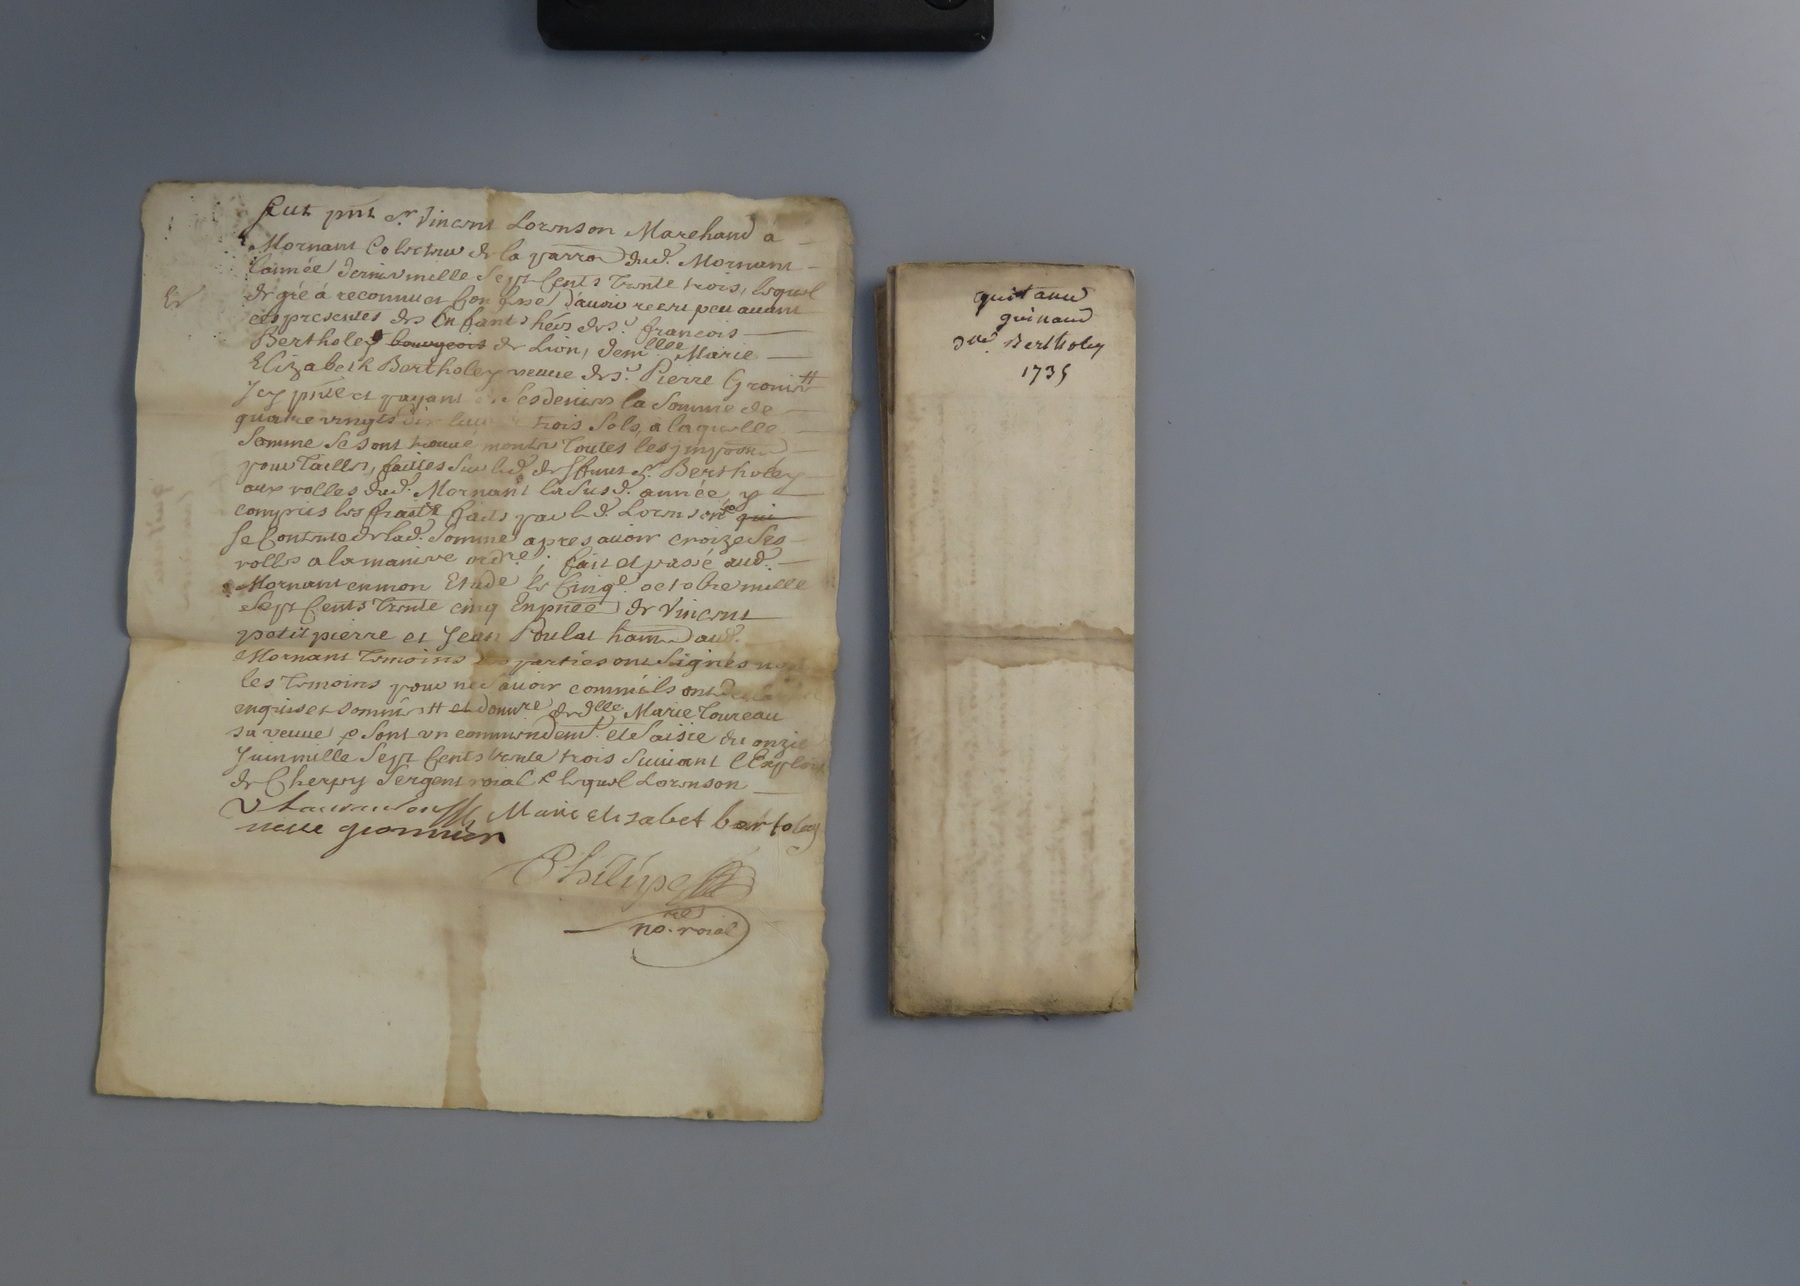 fut pnt sr. Vincent Lorenson Marchand a
Mornant Colecteur de la parroe dud. Mornant
lannée derniere mille Sept Cents trente trois, lequel
de gré a reconnu et Confessé d'avoir receu peu avant
Er
ces presentes des Enfants heirs de sr. françois
Bertholey bourgeois de Lion, demlle Marie
Elizabeth Bertholey veuve de sr. Pierre Gronier #
Jcy pnte et payant de ses deniers la Somme de
quatre vingts dix trois Sols, a laquelle
Somme Se sont trouvé monter Toutes les
pour Tailles, faittes Sur led. deffunt sr. Berthóley
aux rolles dud. Mornant la Susd. année, y
compris les fraits faits par led. Lorenson qui
Se Contente de lad. Somme apres avoir croizé Ses
rolles a la maniere ordre; fait et passé aud.
Mornant en mon Etude le Cinqe. octobre mille
Sept Cents Trente cinq En pnée de Vincent
petit pierre et Jean Poulat aud.
Mornant Temoins parties ont Signés non
les Temoins pour ne Savoir comme ils ont
enquis et sommés # et de dlle Marie Toureau
sa veuve Sont un commendemt. et Saisie du onzie
Juin mille Sept Cents trente trois Suivant l'Exploit
de Cherpy Sergent roial lequel Lorenson
Marie elisabet bertoley
veuve gronnier
Philipe
nore. roial
quittance
guinand
dlle. Berthóley
1735